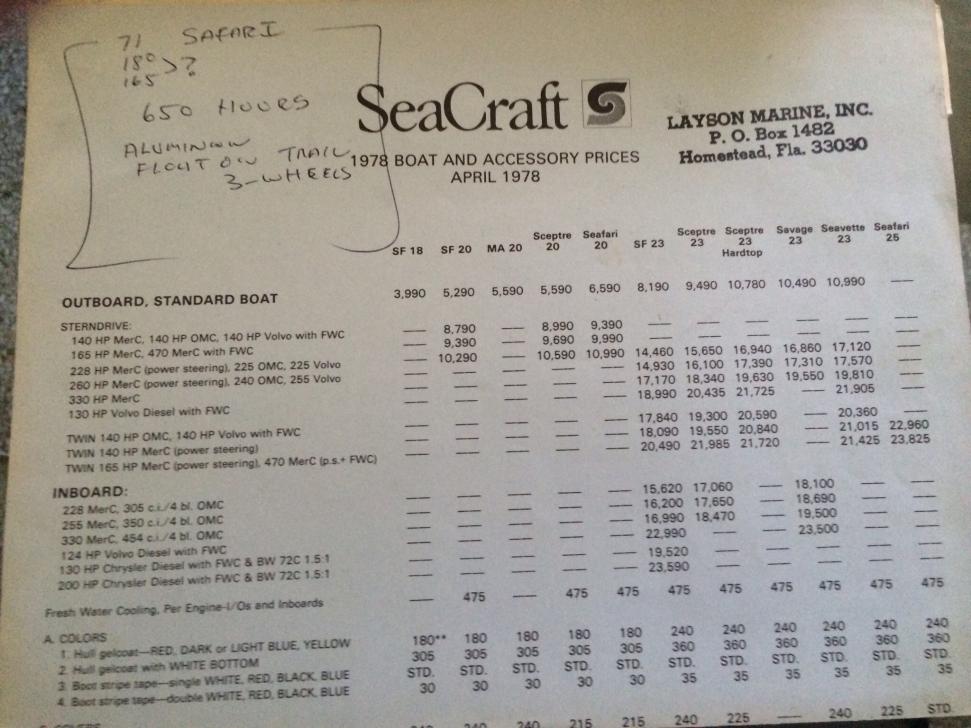 71 SAFARI
180 > ?
165
650 HOURS
ALUMINUM
FLOAT ON TRAIL
3-WHEELS
SeaCraft
LAYSON MARINE, INC.
P. O. Box 1482
Homestead, Fla. 33030
1978 BOAT AND ACCESSORY PRICES
APRIL 1978
SF 18 SF 20 MA 20 Sceptre 20 Seafari 20 SF 23 Sceptre 23 Sceptre 23 Hardtop Savage 23 Seavette 23 Seafari 25
OUTBOARD, STANDARD BOAT 3,990 5,290 5,590 5,590 6,590 8,190 9,490 10,780 10,490 10,990 —
STERNDRIVE:
140 HP MerC, 140 HP OMC, 140 HP Volvo with FWC — 8,790 — 8,990 9,390 — — — — — —
165 HP MerC, 470 MerC with FWC — 9,390 — 9,690 9,990 — — — — — —
228 HP MerC (power steering), 225 OMC, 225 Volvo — 10,290 — 10,590 10,990 14,460 15,650 16,940 16,860 17,120 —
260 HP MerC (power steering), 240 OMC, 255 Volvo — — — — — 14,930 16,100 17,390 17,310 17,570 —
330 HP MerC — — — — — 17,170 18,340 19,630 19,550 19,810 —
130 HP Volvo Diesel with FWC — — — — — 18,990 20,435 21,725 — 21,905 —
TWIN 140 HP OMC, 140 HP Volvo with FWC — — — — — 17,840 19,300 20,590 — 20,360 —
TWIN 140 HP MerC (power steering) — — — — — 18,090 19,550 20,840 — 21,015 22,960
TWIN 165 HP MerC (power steering), 470 MerC (p.s.+ FWC) — — — — — 20,490 21,985 21,720 — 21,425 23,825
INBOARD:
228 MerC, 305 c.i./4 bl. OMC — — — — — 15,620 17,060 — 18,100 — —
255 MerC, 350 c.i./4 bl. OMC — — — — — 16,200 17,650 — 18,690 — —
330 MerC, 454 c.i./4 bl. OMC — — — — — 16,990 18,470 — 19,500 — —
124 HP Volvo Diesel with FWC — — — — — 22,990 — — 23,500 — —
130 HP Chrysler Diesel with FWC & BW 72C 1.5:1 — — — — — 19,520 — — — — —
200 HP Chrysler Diesel with FWC & BW 72C 1.5:1 — — — — — 23,590 — — — — —
Fresh Water Cooling, Per Engine-I/Os and Inboards — 475 — 475 475 475 475 475 475 475 475
A. COLORS
1. Hull gelcoat—RED, DARK or LIGHT BLUE, YELLOW 180** 180 180 180 180 240 240 240 240 240 240
2. Hull gelcoat with WHITE BOTTOM 305 305 305 305 305 360 360 360 360 360 360
3. Boot stripe tape—single WHITE, RED, BLACK, BLUE STD. STD. STD. STD. STD. STD. STD. STD. STD. STD. STD.
4. Boot stripe tape—double WHITE, RED, BLACK, BLUE 30 30 30 30 30 35 35 35 35 35 35
240 215 215 240 225 — 240 225 STD.